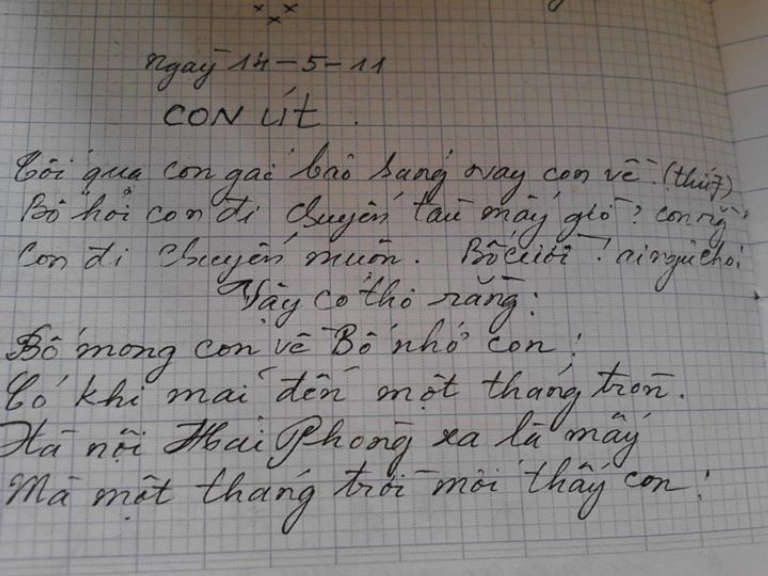 ngày 14-5-11
CON ÚT.
Tối qua con gái báo sáng nay con về. (thứ 7)
Bố hỏi con đi chuyến tàu mấy giờ? con
Con đi chuyến muộn. Bố cười!
Vậy có thơ rằng:
Bố mong con về Bố nhớ con!
Có khi mãi đến một tháng tròn.
Hà nội Hải Phòng xa là mấy
Mà một tháng trời mới thấy con!